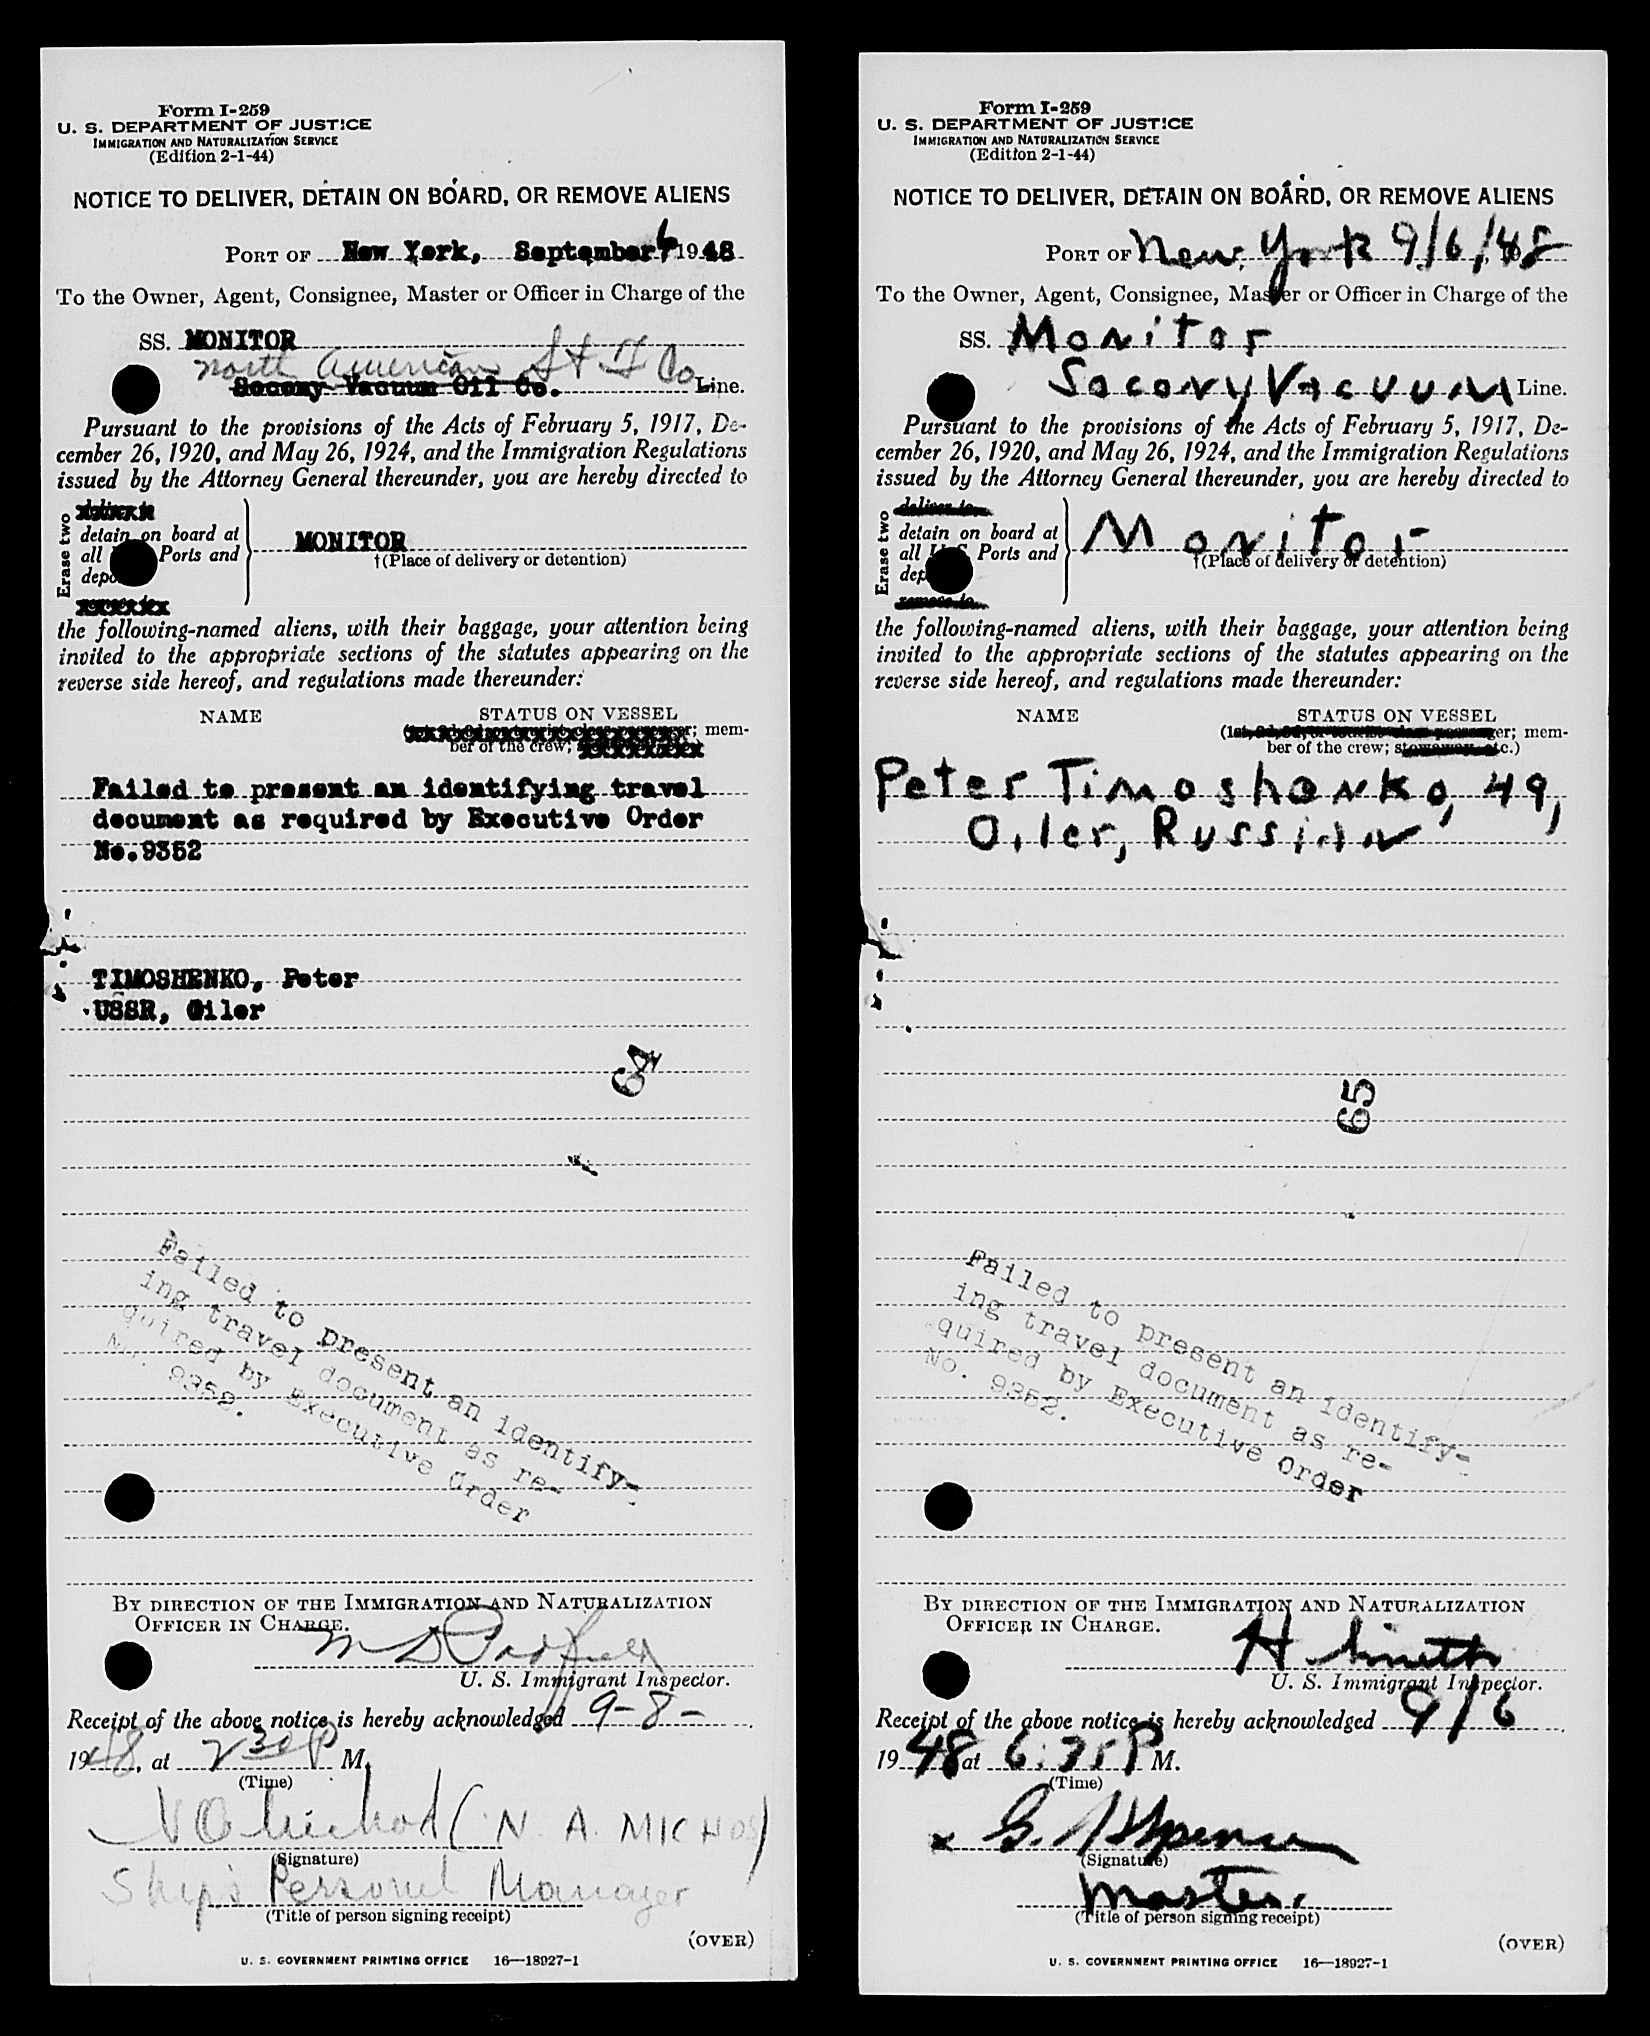 Form I-259
U. S. DEPARTMENT OF JUSTICE
IMMIGRATION AND NATURALIZATION SERVICE
(Edition 2-1-44)
NOTICE TO DELIVER, DETAIN ON BOARD, OR REMOVE ALIENS
PORT OF New York, September 6 1948
To the Owner, Agent, Consignee, Master or Officer in Charge of the
SS. MONITOR
North American S & T Co
Socony Vacuum Oil Co. Line.
Pursuant to the provisions of the Acts of February 5, 1917, De-
cember 26, 1920, and May 26, 1924, and the Immigration Regulations
issued by the Attorney General thereunder, you are hereby directed to
Erase two
detain on board at
all Ports and
MONITOR
†(Place of delivery or detention)
the following-named aliens, with their baggage, your attention being
invited to the appropriate sections of the statutes appearing on the
reverse side hereof, and regulations made thereunder:
NAME STATUS ON VESSEL
mem-
ber of the crew;
Failed to present an identifying travel
document as required by Executive Order
No.9352
TIMOSHENKO, Peter
USSR, Oiler
64
Failed to present an identify-
ing travel document as re-
quired by Executive Order
No. 9352.
BY DIRECTION OF THE IMMIGRATION AND NATURALIZATION
OFFICER IN CHARGE.
U. S. Immigrant Inspector.
Receipt of the above notice is hereby acknowledged 9-8-
1948, at 2 30 P M.
(Time)
N A Michos (N. A. MICHOS)
(Signature)
Ship's Personel Manager
(Title of person signing receipt)
(OVER)
U. S. GOVERNMENT PRINTING OFFICE 16—18927-1
Form I-259
U. S. DEPARTMENT OF JUSTICE
IMMIGRATION AND NATURALIZATION SERVICE
(Edition 2-1-44)
NOTICE TO DELIVER, DETAIN ON BOARD, OR REMOVE ALIENS
PORT OF New York 9/6/48
To the Owner, Agent, Consignee, Master or Officer in Charge of the
SS. Monitor
Socony Vacuum Line.
Pursuant to the provisions of the Acts of February 5, 1917, De-
cember 26, 1920, and May 26, 1924, and the Immigration Regulations
issued by the Attorney General thereunder, you are hereby directed to
Erase two
deliver to
detain on board at
all U.S. Ports and
remove to
Monitor
†(Place of delivery or detention)
the following-named aliens, with their baggage, your attention being
invited to the appropriate sections of the statutes appearing on the
reverse side hereof, and regulations made thereunder:
NAME STATUS ON VESSEL
(1st, 2d, 3d, or tourist class passenger; mem-
ber of the crew; stowaway, etc.)
Peter Timoshenko, 49,
Oiler, Russian
65
Failed to present an identify-
ing travel document as re-
quired by Executive Order
No. 9352.
BY DIRECTION OF THE IMMIGRATION AND NATURALIZATION
OFFICER IN CHARGE.
U. S. Immigrant Inspector.
Receipt of the above notice is hereby acknowledged 9/6
1948 at 6:35 P M.
(Time)
x G. Spence
(Signature)
Master.
(Title of person signing receipt)
(OVER)
U. S. GOVERNMENT PRINTING OFFICE 16—18927-1